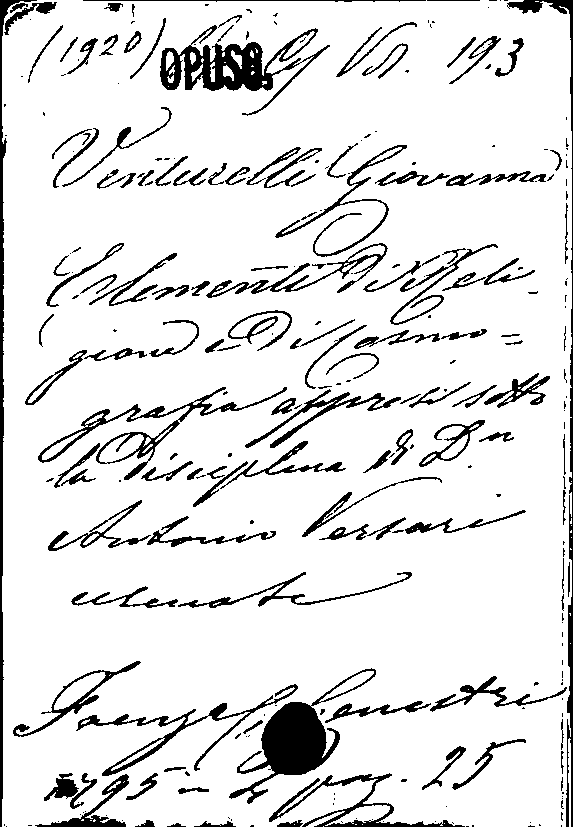 (1920) OPUSC. G VII. 19.3
Venturelli Giovanna
Elementi di Reli-
gione e di Cosmo=
grafia appresi sotto
la disciplina di D.n
Antonio Versari
cesenate
Faenza Genestri
1795 in 4 pag. 25